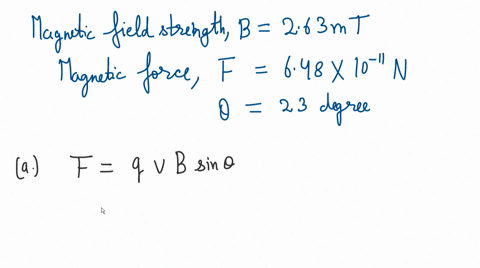 Magnetic field strength, B = 2.63 mT
Magnetic force, F = 6.48 × 10⁻¹¹ N
θ = 23 degree
(a.) F = q v B sinθ